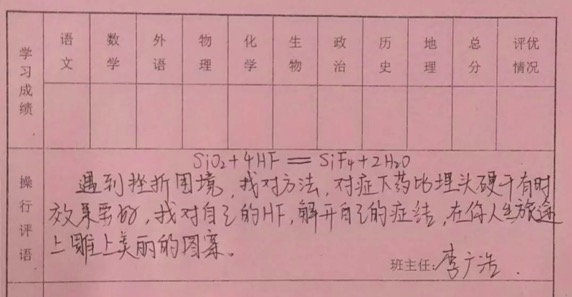 学习成绩 语文 数学 外语 物理 化学 生物 政治 历史 地理 总分 评优情况
SiO₂+4HF══SiF₄+2H₂O
操行评语
遇到挫折困境,找对方法,对症下药比埋头硬干有时
效果要好,找对自己的HF,解开自己的症结,在你人生旅途
上雕上美丽的图案。
班主任:李广浩.